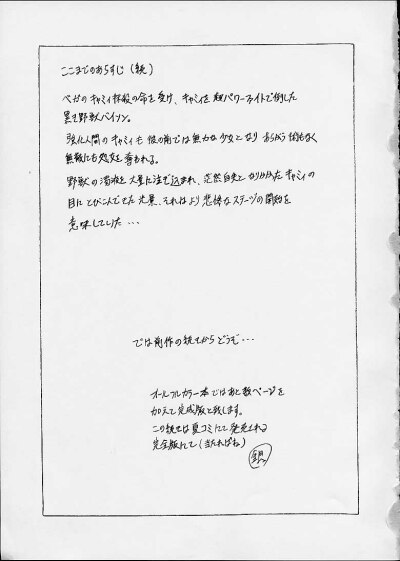 ここまでのあらすじ（銃）
ベガのキャミィ抹殺の命を受け、キャミィを超パワーファイトで倒した
黒き野獣バイソン。
強化人間のキャミィも彼の前では無力な少女となり あらがう術もなく
無惨にも処女を奪われる。
野獣の濁液を大量に注ぎ込まれ、茫然自失となりかかったキャミィの
目にとびこんできた光景、それはより悲惨なステージの開幕を
意味していた・・・
では前作の続きからどうぞ・・・
オールフルカラー本ではあと数ページを
加えて完成版と致します。
この続きは夏コミにて発売される
完全版にて（当たればね）
銀